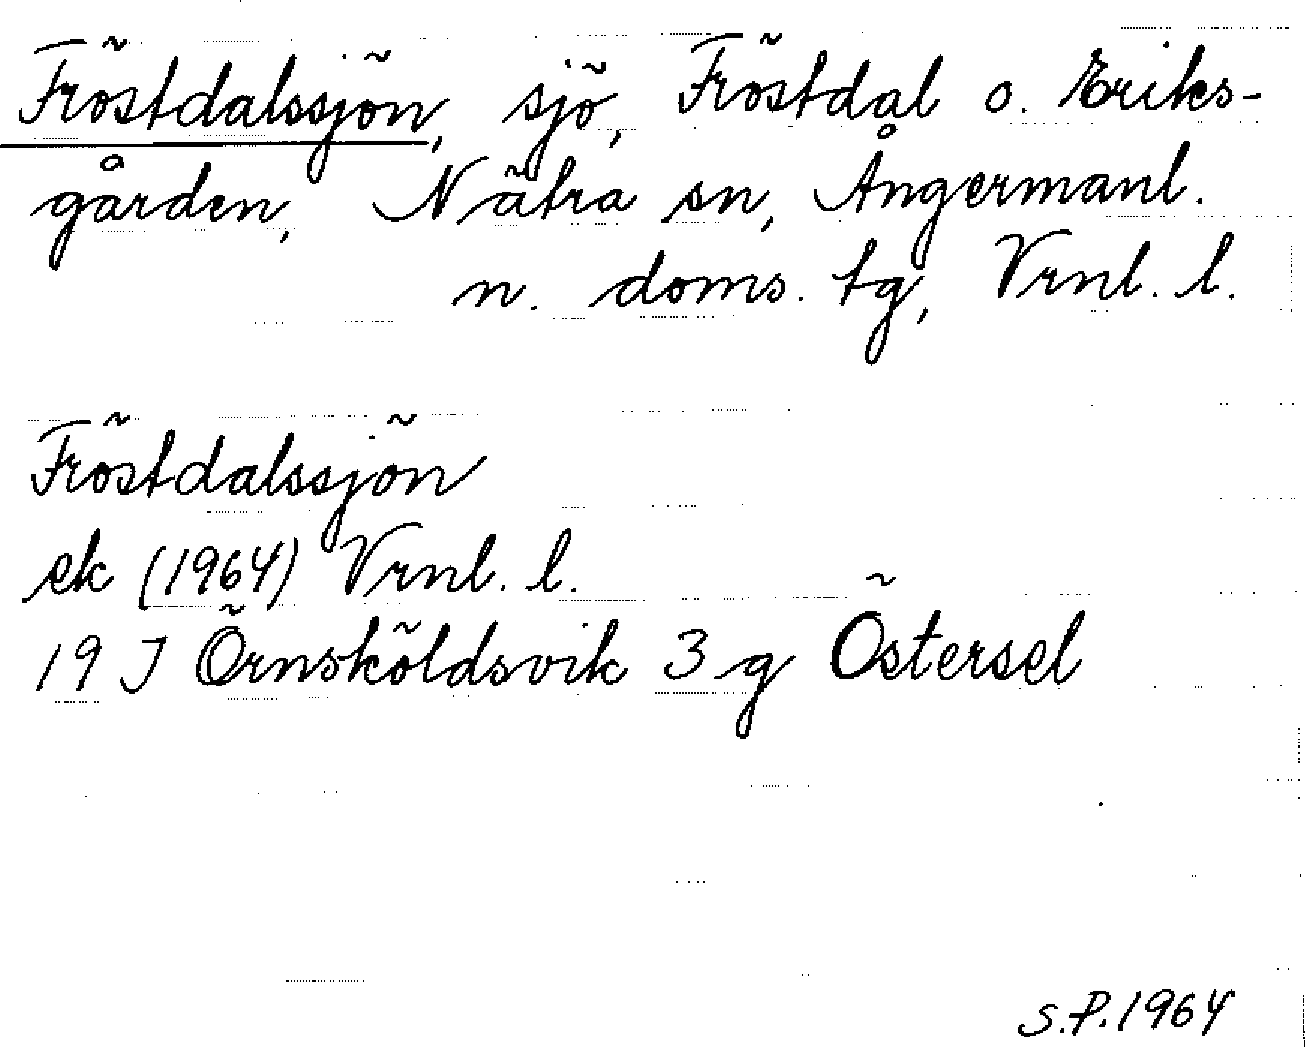 Fröstdalssjön, sjö, Fröstdal o. Eriks-
gården, Nätra sn, Ångermanl.
n. doms. tg, Vrnl. l.
Fröstdalssjön
ek (1964) Vrnl. l.
19 J Örnsköldsvik 3 g Östersel
S.P. 1964